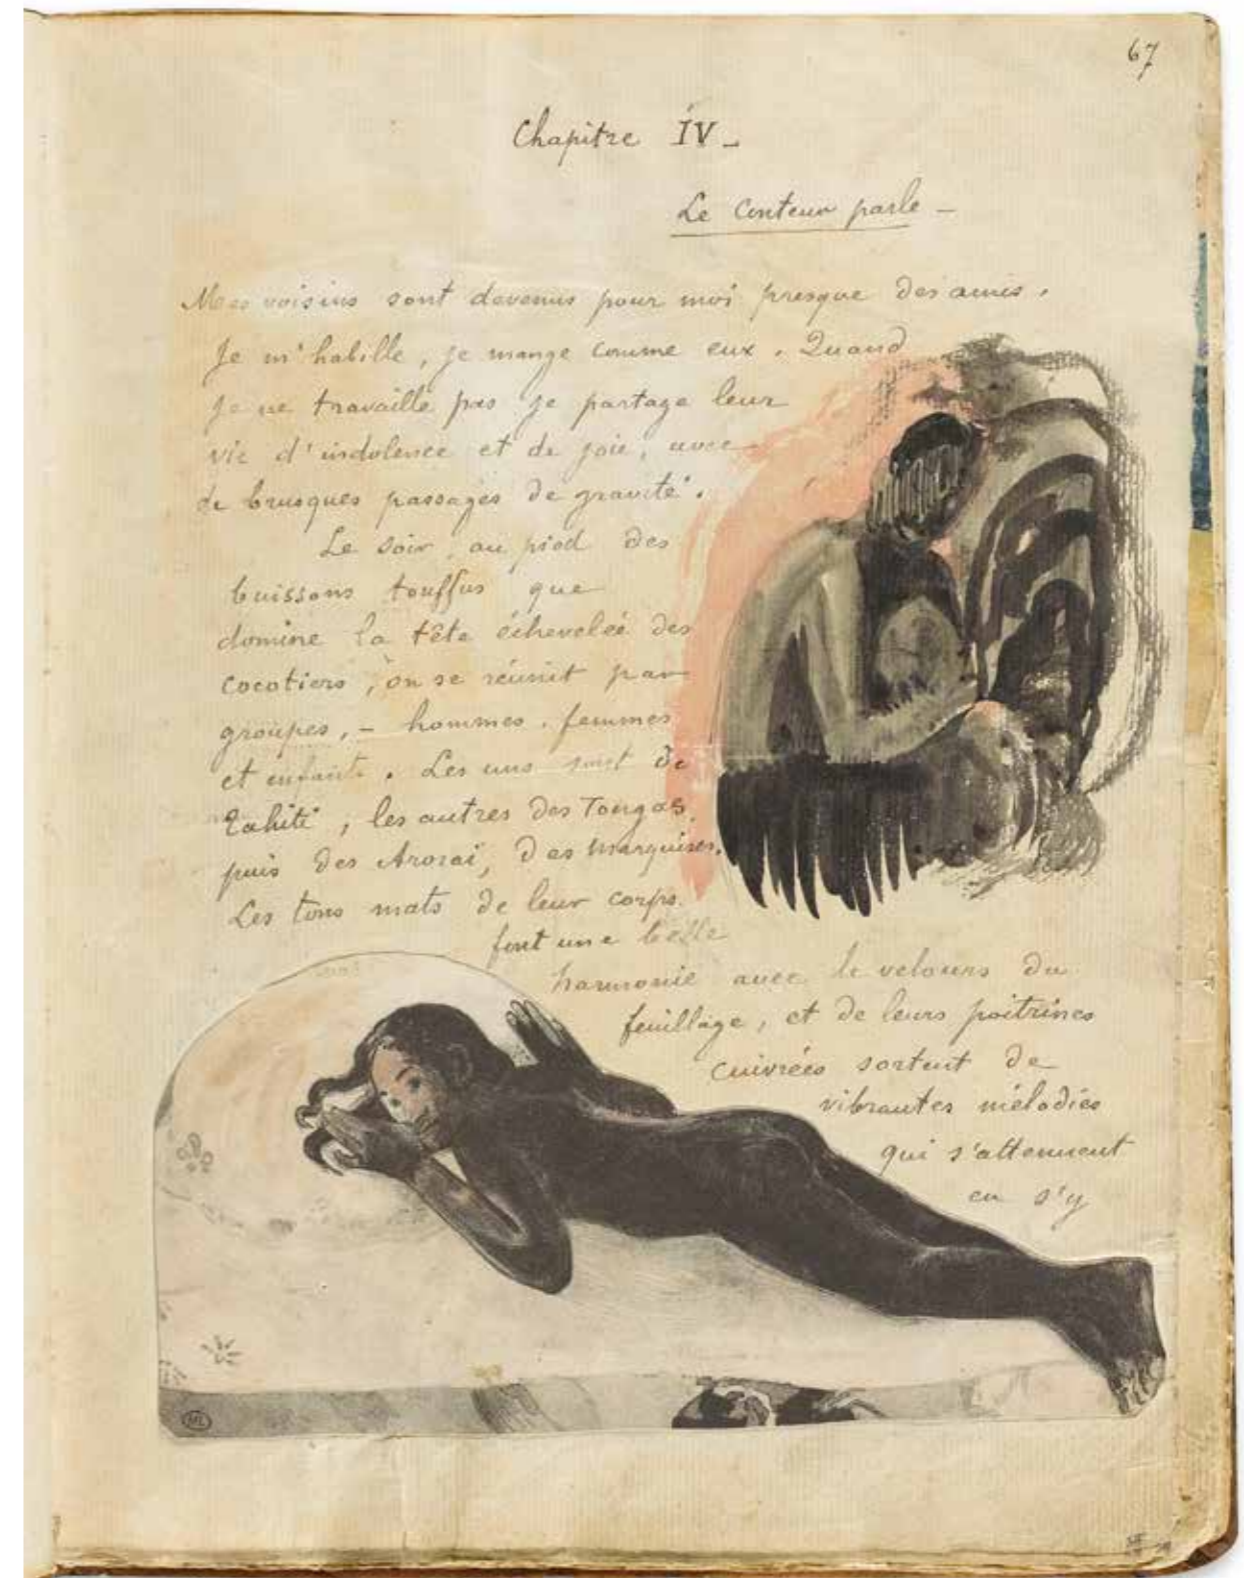 67
Chapitre IV_
Le Conteur parle _
Mes voisins sont devenus pour moi presque des amis.
Je m'habille, je mange comme eux. Quand
je ne travaille pas je partage leur
vie d'indolence et de joie, avec
de brusques passages de gravité.
Le soir, au pied des
buissons touffus que
domine la tête échevelée des
cocotiers, on se réunit par
groupes, - hommes, femmes
et enfants. Les uns sont de
Tahiti, les autres des Tongas,
puis des Arorai, des Marquises.
Les tons mats de leur corps
font une belle
harmonie avec le velours du
feuillage, et de leurs poitrines
cuivrées sortent de
vibrantes mélodies
qui s'atténuent
en s'y
ML